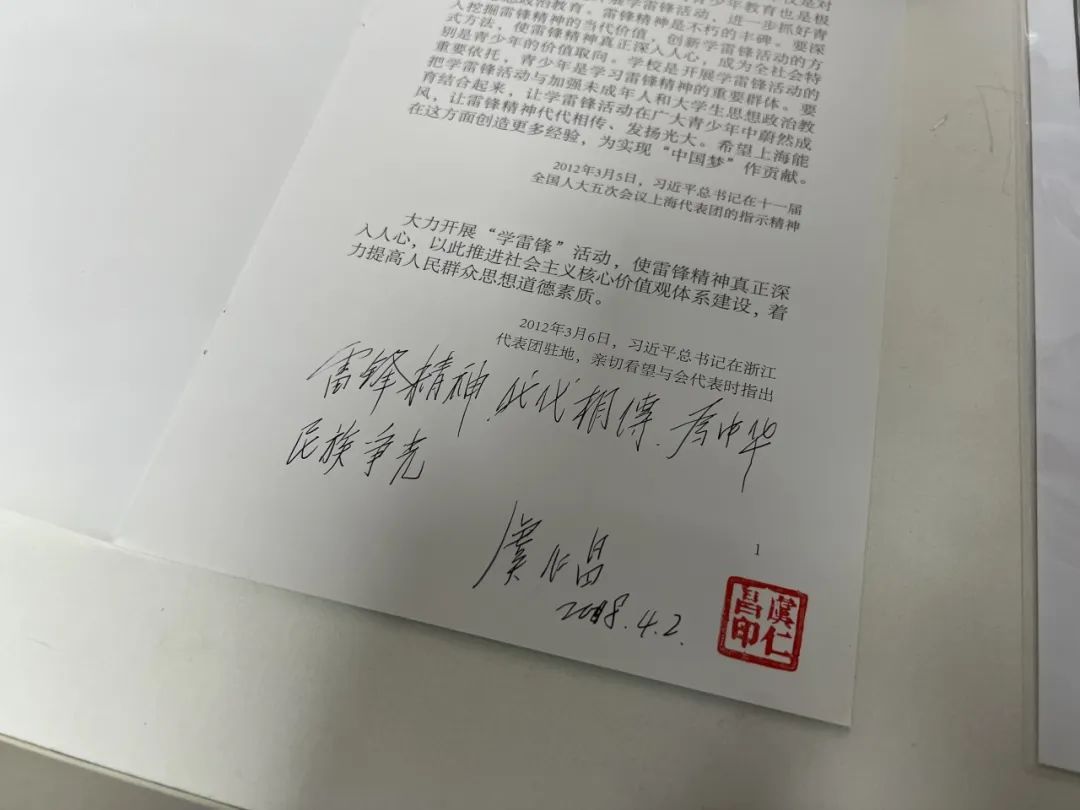 展学雷锋活动，进一步抓好青
思想政治教育。雷锋精神是不朽的丰碑。要深
入挖掘雷锋精神的当代价值，创新学雷锋活动的方
式方法，使雷锋精神真正深入人心，成为全社会特
别是青少年的价值取向。学校是开展学雷锋活动的
重要依托，青少年是学习雷锋精神的重要群体。要
把学雷锋活动与加强未成年人和大学生思想政治教
育结合起来，让学雷锋活动在广大青少年中蔚然成
风，让雷锋精神代代相传、发扬光大。希望上海能
在这方面创造更多经验，为实现“中国梦”作贡献。
2012年3月5日，习近平总书记在十一届
全国人大五次会议上海代表团的指示精神
大力开展“学雷锋”活动，使雷锋精神真正深
入人心，以此推进社会主义核心价值观体系建设，着
力提高人民群众思想道德素质。
2012年3月6日，习近平总书记在浙江
代表团驻地，亲切看望与会代表时指出
雷锋精神.代代相傳.为中华
民族争光
虞仁昌
4.2.
1
虞仁昌印